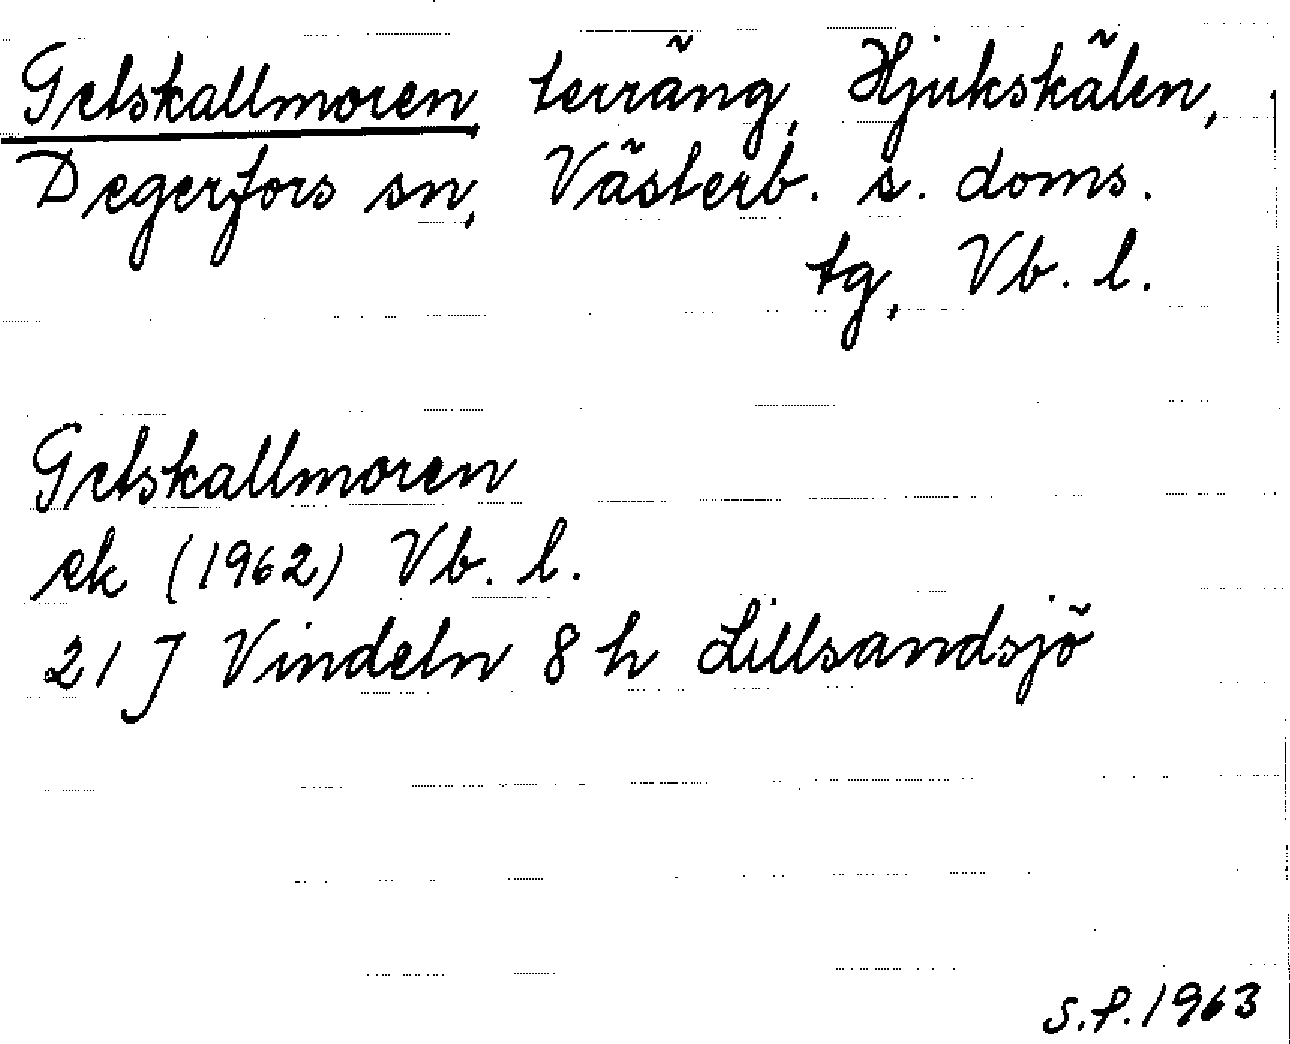 Getskallmoren, terräng, Hjukskälen,
Degerfors sn, Västerb. s. doms.
tg, Vb. l.
Getskallmoren
ek (1962) Vb. l.
21 J Vindeln 8 h Lillsandsjö
S.P. 1963